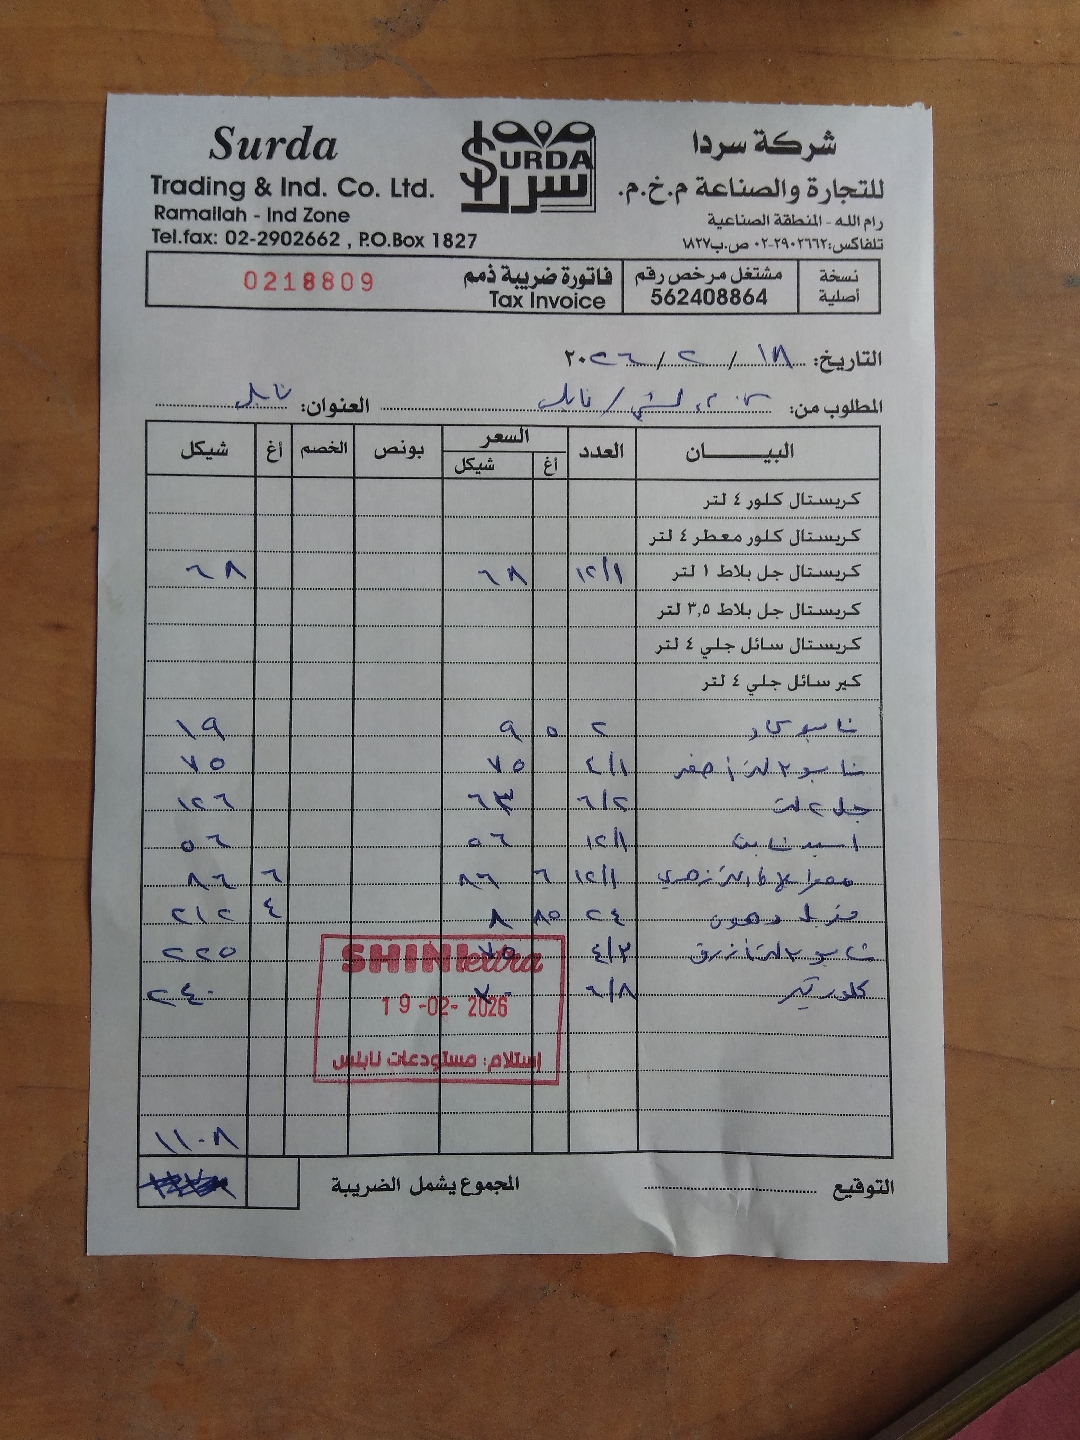 Surda
Trading & Ind. Co. Ltd.
Ramallah - Ind Zone
Tel.fax: 02-2902662 , P.O.Box 1827
SURDA
سردا
شركة سردا
للتجارة والصناعة م.خ.م.
رام الله - المنطقة الصناعية
تلفاكس: ٢٩٠٢٦٦٢-٠٢ ص.ب ١٨٢٧
نسخة أصلية
مشتغل مرخص رقم 562408864
فاتورة ضريبة ذمم
Tax Invoice
0218809
التاريخ: ١٨ / ٢ / ٢٠٢٦
المطلوب من: / نابلس العنوان: نابلس
البيــــان العدد السعر أغ شيكل بونص الخصم أغ شيكل
كريستال كلور ٤ لتر
كريستال كلور معطر ٤ لتر
كريستال جل بلاط ١ لتر ١٢/١ ٦٨ ٦٨
كريستال جل بلاط ٣,٥ لتر
كريستال سائل جلي ٤ لتر
كير سائل جلي ٤ لتر
شامبو ٢ ٥ ٩ ١٩
شامبو ٢ لتر أصفر ٤/١ ٧٥ ٧٥
جل ٢ لتر ٦/٢ ٦٣ ١٢٦
اسيد ١٢/١ ٥٦ ٥٦
معطر ١٢/١ ٦ ٨٦ ٦ ٨٦
دهون ٢٤ ٨٥ ٨ ٤ ٢١٢
شامبو ٢ لتر أزرق ٤/٣ ٧٥ ٢٢٥
كلور ٦/٨ ٢٤٠
SHINI extra
19-02-2026
إستلام: مستودعات نابلس
١١٠٨
التوقيع
المجموع يشمل الضريبة